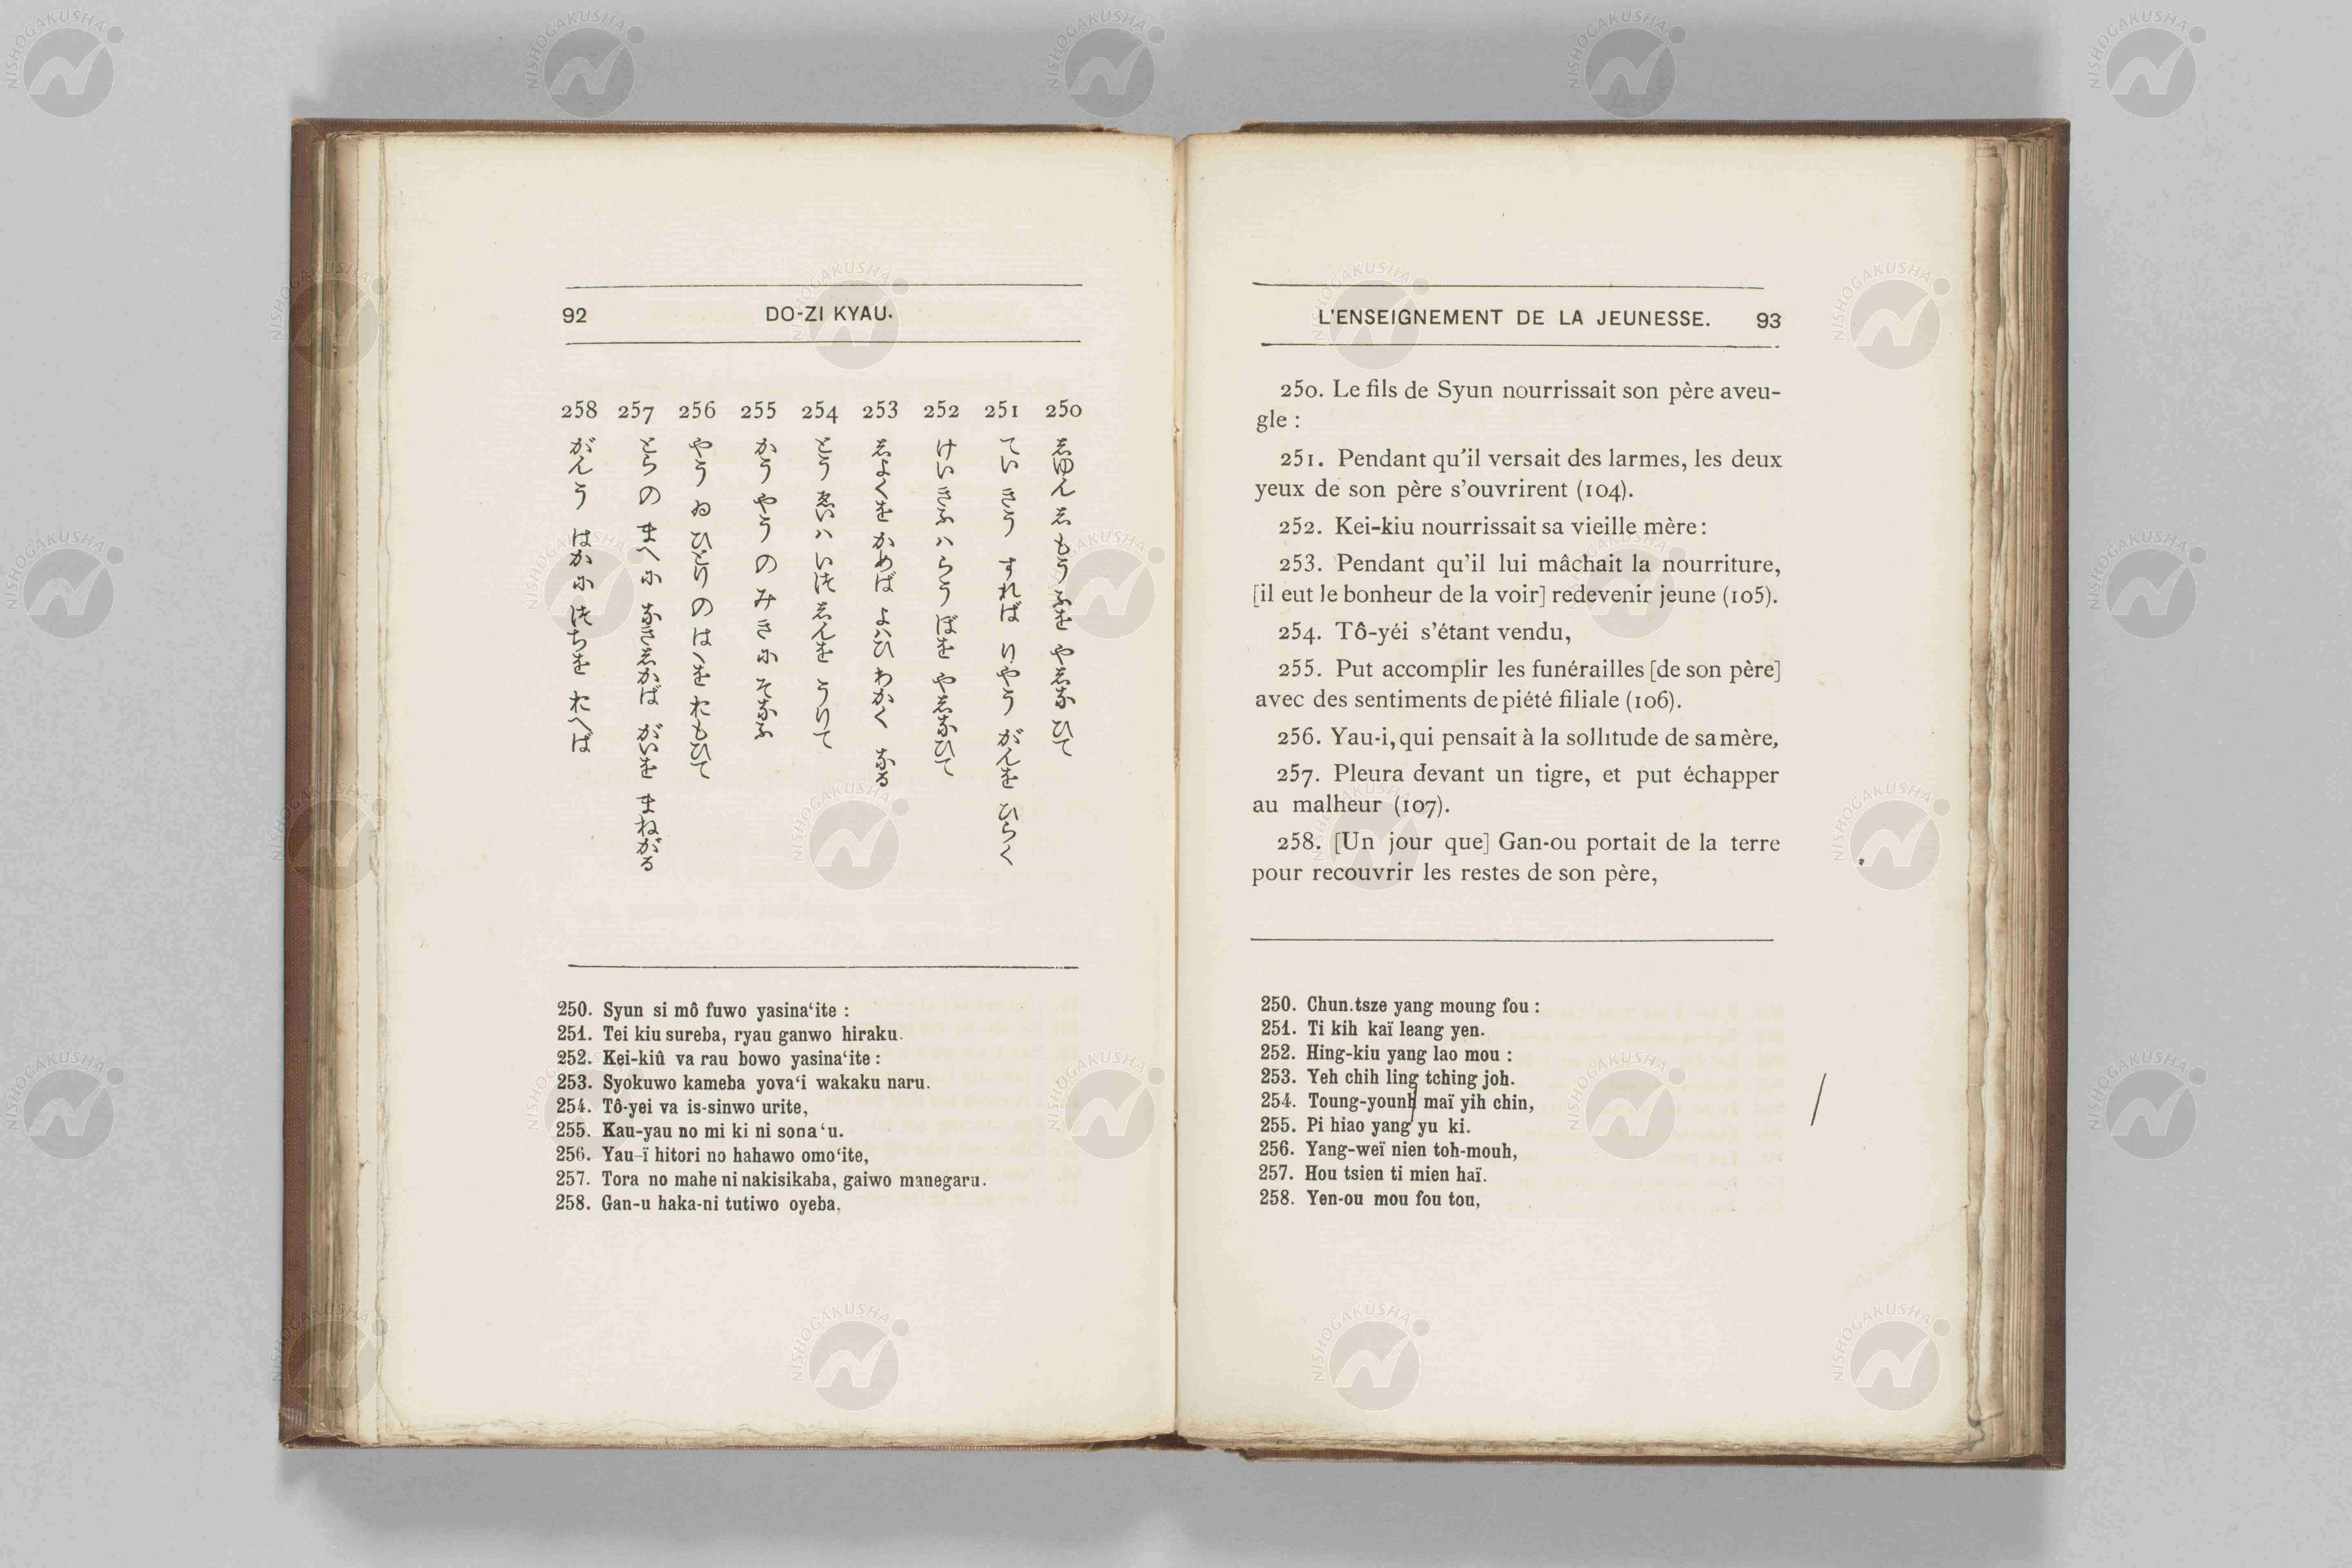 92 DO-ZI KYAU.
258 257 256 255 254 253 252 251 250
しゆん し もう ふを やしな ひて
てい きう すれば りやう がんを ひらく
けい きふ ハ らう ぼを やしなひて
しよくを かめば よハひ わかく なる
とう ゑいハ いつ しんを うりて
かう やう の みき に そなふ
やう ゐ ひとり の はゝを おもひて
とら の まへ に なきしかば がいを まねがる
がん う はか に つちを おへば
250. Syun si mô fuwo yasina‘ite :
251. Tei kiu sureba, ryau ganwo hiraku.
252. Kei-kiû va rau bowo yasina‘ite :
253. Syokuwo kameba yova‘i wakaku naru.
254. Tô-yei va is-sinwo urite,
255. Kau-yau no mi ki ni sona‘u.
256. Yau-ï hitori no hahawo omo‘ite,
257. Tora no mahe ni nakisikaba, gaiwo manegaru.
258. Gan-u haka-ni tutiwo oyeba,
L'ENSEIGNEMENT DE LA JEUNESSE. 93
250. Le fils de Syun nourrissait son père aveu-
gle :
251. Pendant qu'il versait des larmes, les deux
yeux de son père s'ouvrirent (104).
252. Kei-kiu nourrissait sa vieille mère :
253. Pendant qu'il lui mâchait la nourriture,
[il eut le bonheur de la voir] redevenir jeune (105).
254. Tô-yéi s'étant vendu,
255. Put accomplir les funérailles [de son père]
avec des sentiments de piété filiale (106).
256. Yau-i, qui pensait à la sollitude de sa mère,
257. Pleura devant un tigre, et put échapper
au malheur (107).
258. [Un jour que] Gan-ou portait de la terre
pour recouvrir les restes de son père,
250. Chun.tsze yang moung fou :
251. Ti kih kaï leang yen.
252. Hing-kiu yang lao mou :
253. Yeh chih ling tching joh.
254. Toung-younh maï yih chin,
255. Pi hiao yang yu ki.
256. Yang-weï nien toh-mouh,
257. Hou tsien ti mien haï.
258. Yen-ou mou fou tou,
NISHOGAKUSHA